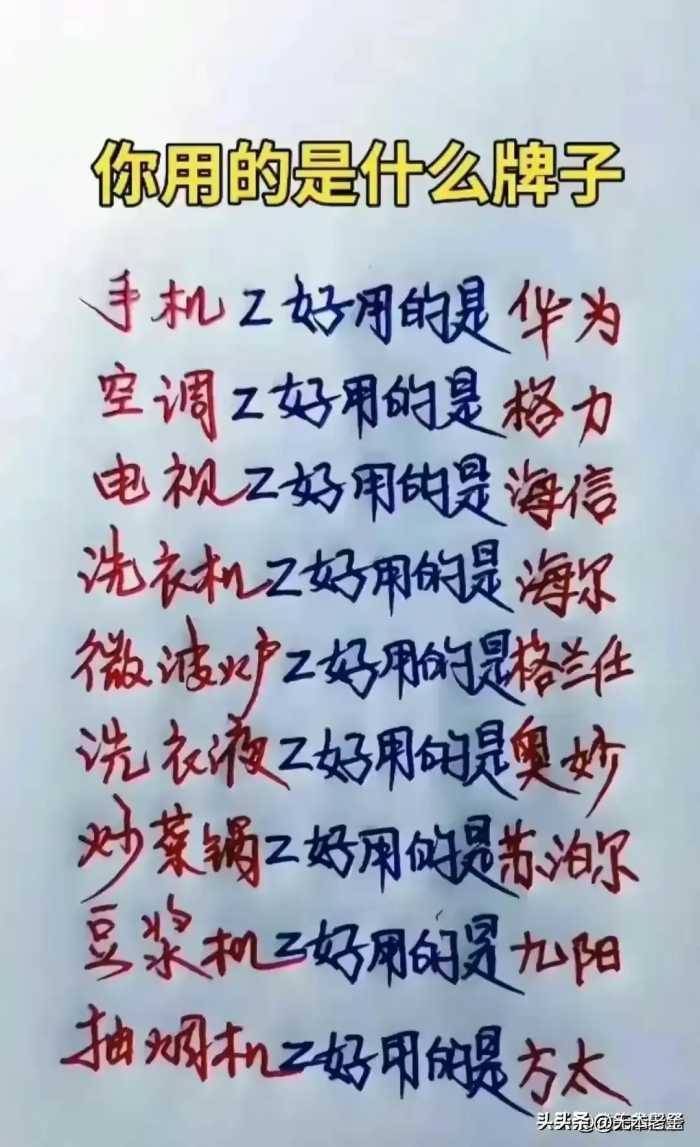 你用的是什么牌子
手机Z好用的是华为
空调Z好用的是格力
电视Z好用的是海信
洗衣机Z好用的是海尔
微波炉Z好用的是格兰仕
洗衣液Z好用的是奥妙
炒菜锅Z好用的是苏泊尔
豆浆机Z好用的是九阳
抽烟机Z好用的是方太
头条